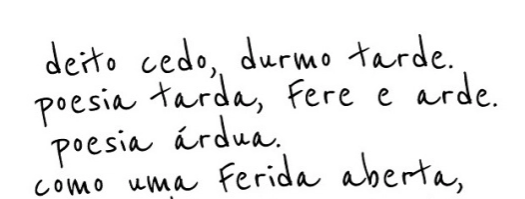 deito cedo, durmo tarde.
poesia tarda, fere e arde.
poesia árdua.
como uma ferida aberta,